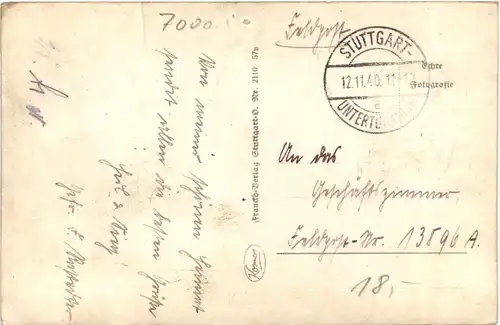 7000
Von meiner schönen Heimat
sendet allen die besten Grüße
Heil & Sieg!
Gefr.
Franckh-Verlag Stuttgart-O. Nr. 2110 57b
Feldpost
STUTTGART-
12.11.40. 11
a
UNTERTÜRKHEIM
Echte
Fotografie
An das
Geschäftszimmer
Feldpost-Nr. 13896 A.
18,-